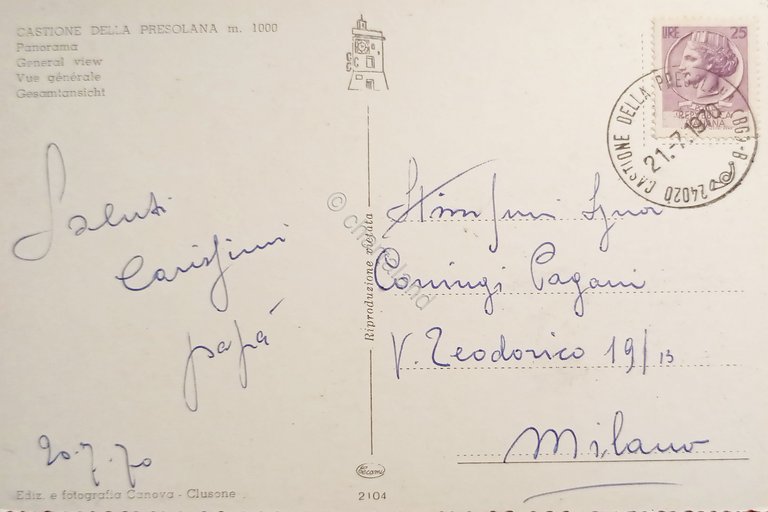 CASTIONE DELLA PRESOLANA m. 1000
Panorama
General view
Vue générale
Gesamtansicht
Saluti
Carissimi
papà
20.7.70
Ediz. e fotografia Canova - Clusone
Riproduzione vietata
© chartaland
2104
LIRE 25
REPUBBLICA
ITALIANA
24020 CASTIONE DELLA PRESOLANA (BG) - B
21.-7.1970
Pagani
V. Teodorico 19/13
Milano